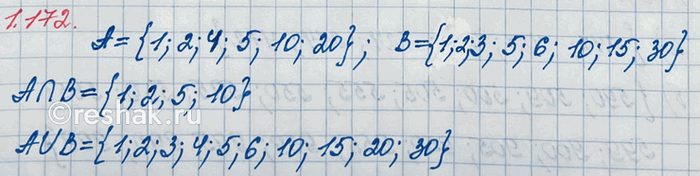 1.172.
A={1;2;4;5;10;20}; B={1;2;3;5;6;10;15;30}
A∩B={1;2;5;10}
A∪B={1;2;3;4;5;6;10;15;20;30}
Reshak.ru